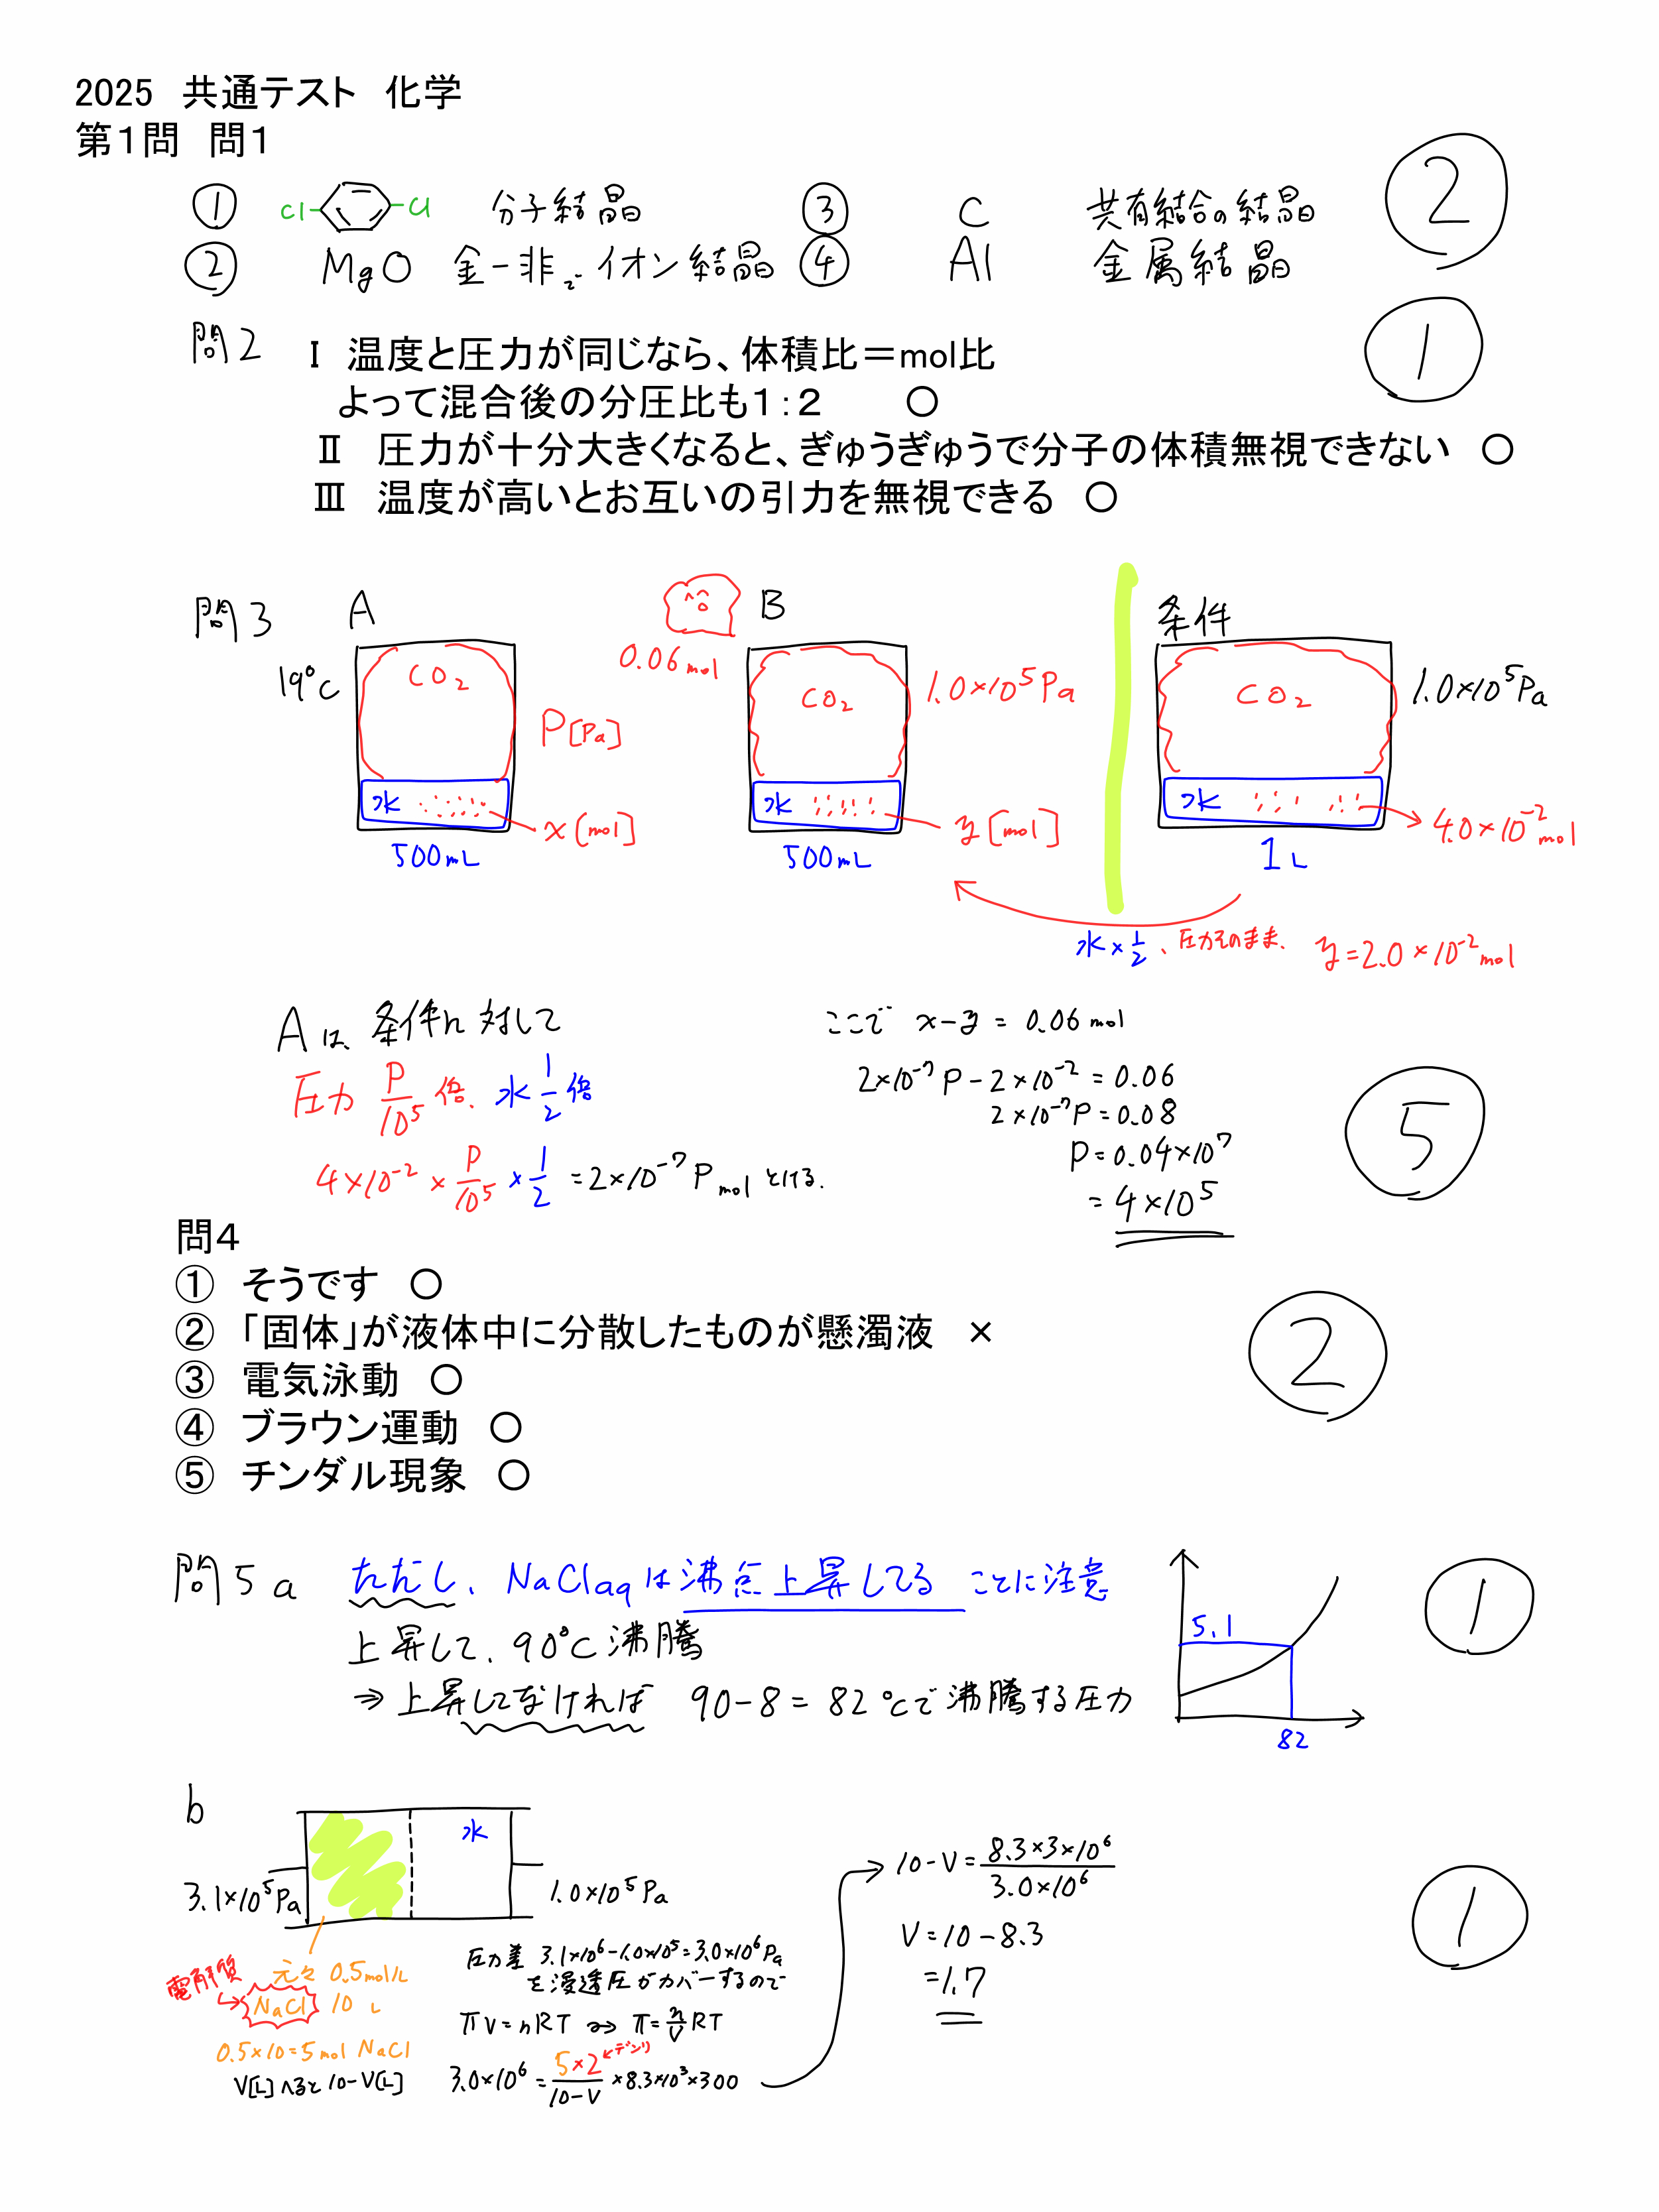 2025 共通テスト 化学
第1問 問1
① Cl Cl 分子結晶 ③ C 共有結合の結晶
② MgO 金-非でイオン結晶 ④ Al 金属結晶
②
問2
Ⅰ 温度と圧力が同じなら、体積比=mol比
よって混合後の分圧比も1:2 ○
①
Ⅱ 圧力が十分大きくなると、ぎゅうぎゅうで分子の体積無視できない ○
Ⅲ 温度が高いとお互いの引力を無視できる ○
問3 A B 条件
19℃ CO2 P[Pa]
水 x[mol]
500mL
0.06mol
CO2 1.0×10^5Pa
水 y[mol]
500mL
CO2 1.0×10^5Pa
水 4.0×10^-2 mol
1L
水×1/2、圧力そのまま、 y=2.0×10^-2 mol
Aは、条件に対して
圧力 P/10^5 倍、水 1/2 倍
4×10^-2 × P/10^5 × 1/2 = 2×10^-7 P mol とける.
ここで x-y = 0.06 mol
2×10^-7 P - 2×10^-2 = 0.06
2×10^-7 P = 0.08
P = 0.04×10^7
= 4×10^5
⑤
問4
① そうです ○
② 「固体」が液体中に分散したものが懸濁液 ×
③ 電気泳動 ○
④ ブラウン運動 ○
⑤ チンダル現象 ○
②
問5 a ただし、NaClaqは沸点上昇してる ことに注意
上昇して、90℃沸騰
⇒ 上昇してなければ 90-8=82℃で沸騰する圧力
5.1
82
①
b
水
3.1×10^5Pa 1.0×10^5Pa
電解質
元々 0.5mol/L
NaCl 10 L
0.5×10=5mol NaCl
V[L]へると10-V[L]
圧力差 3.1×10^6-1.0×10^5=3.0×10^6Pa
を浸透圧がカバーするので
πV=nRT ⇝ π=n/V RT
3.0×10^6 = 5×2/10-V ×8.3×10^3×300
←デンリ
10-V = 8.3×3×10^6/3.0×10^6
V=10-8.3
=1.7
①